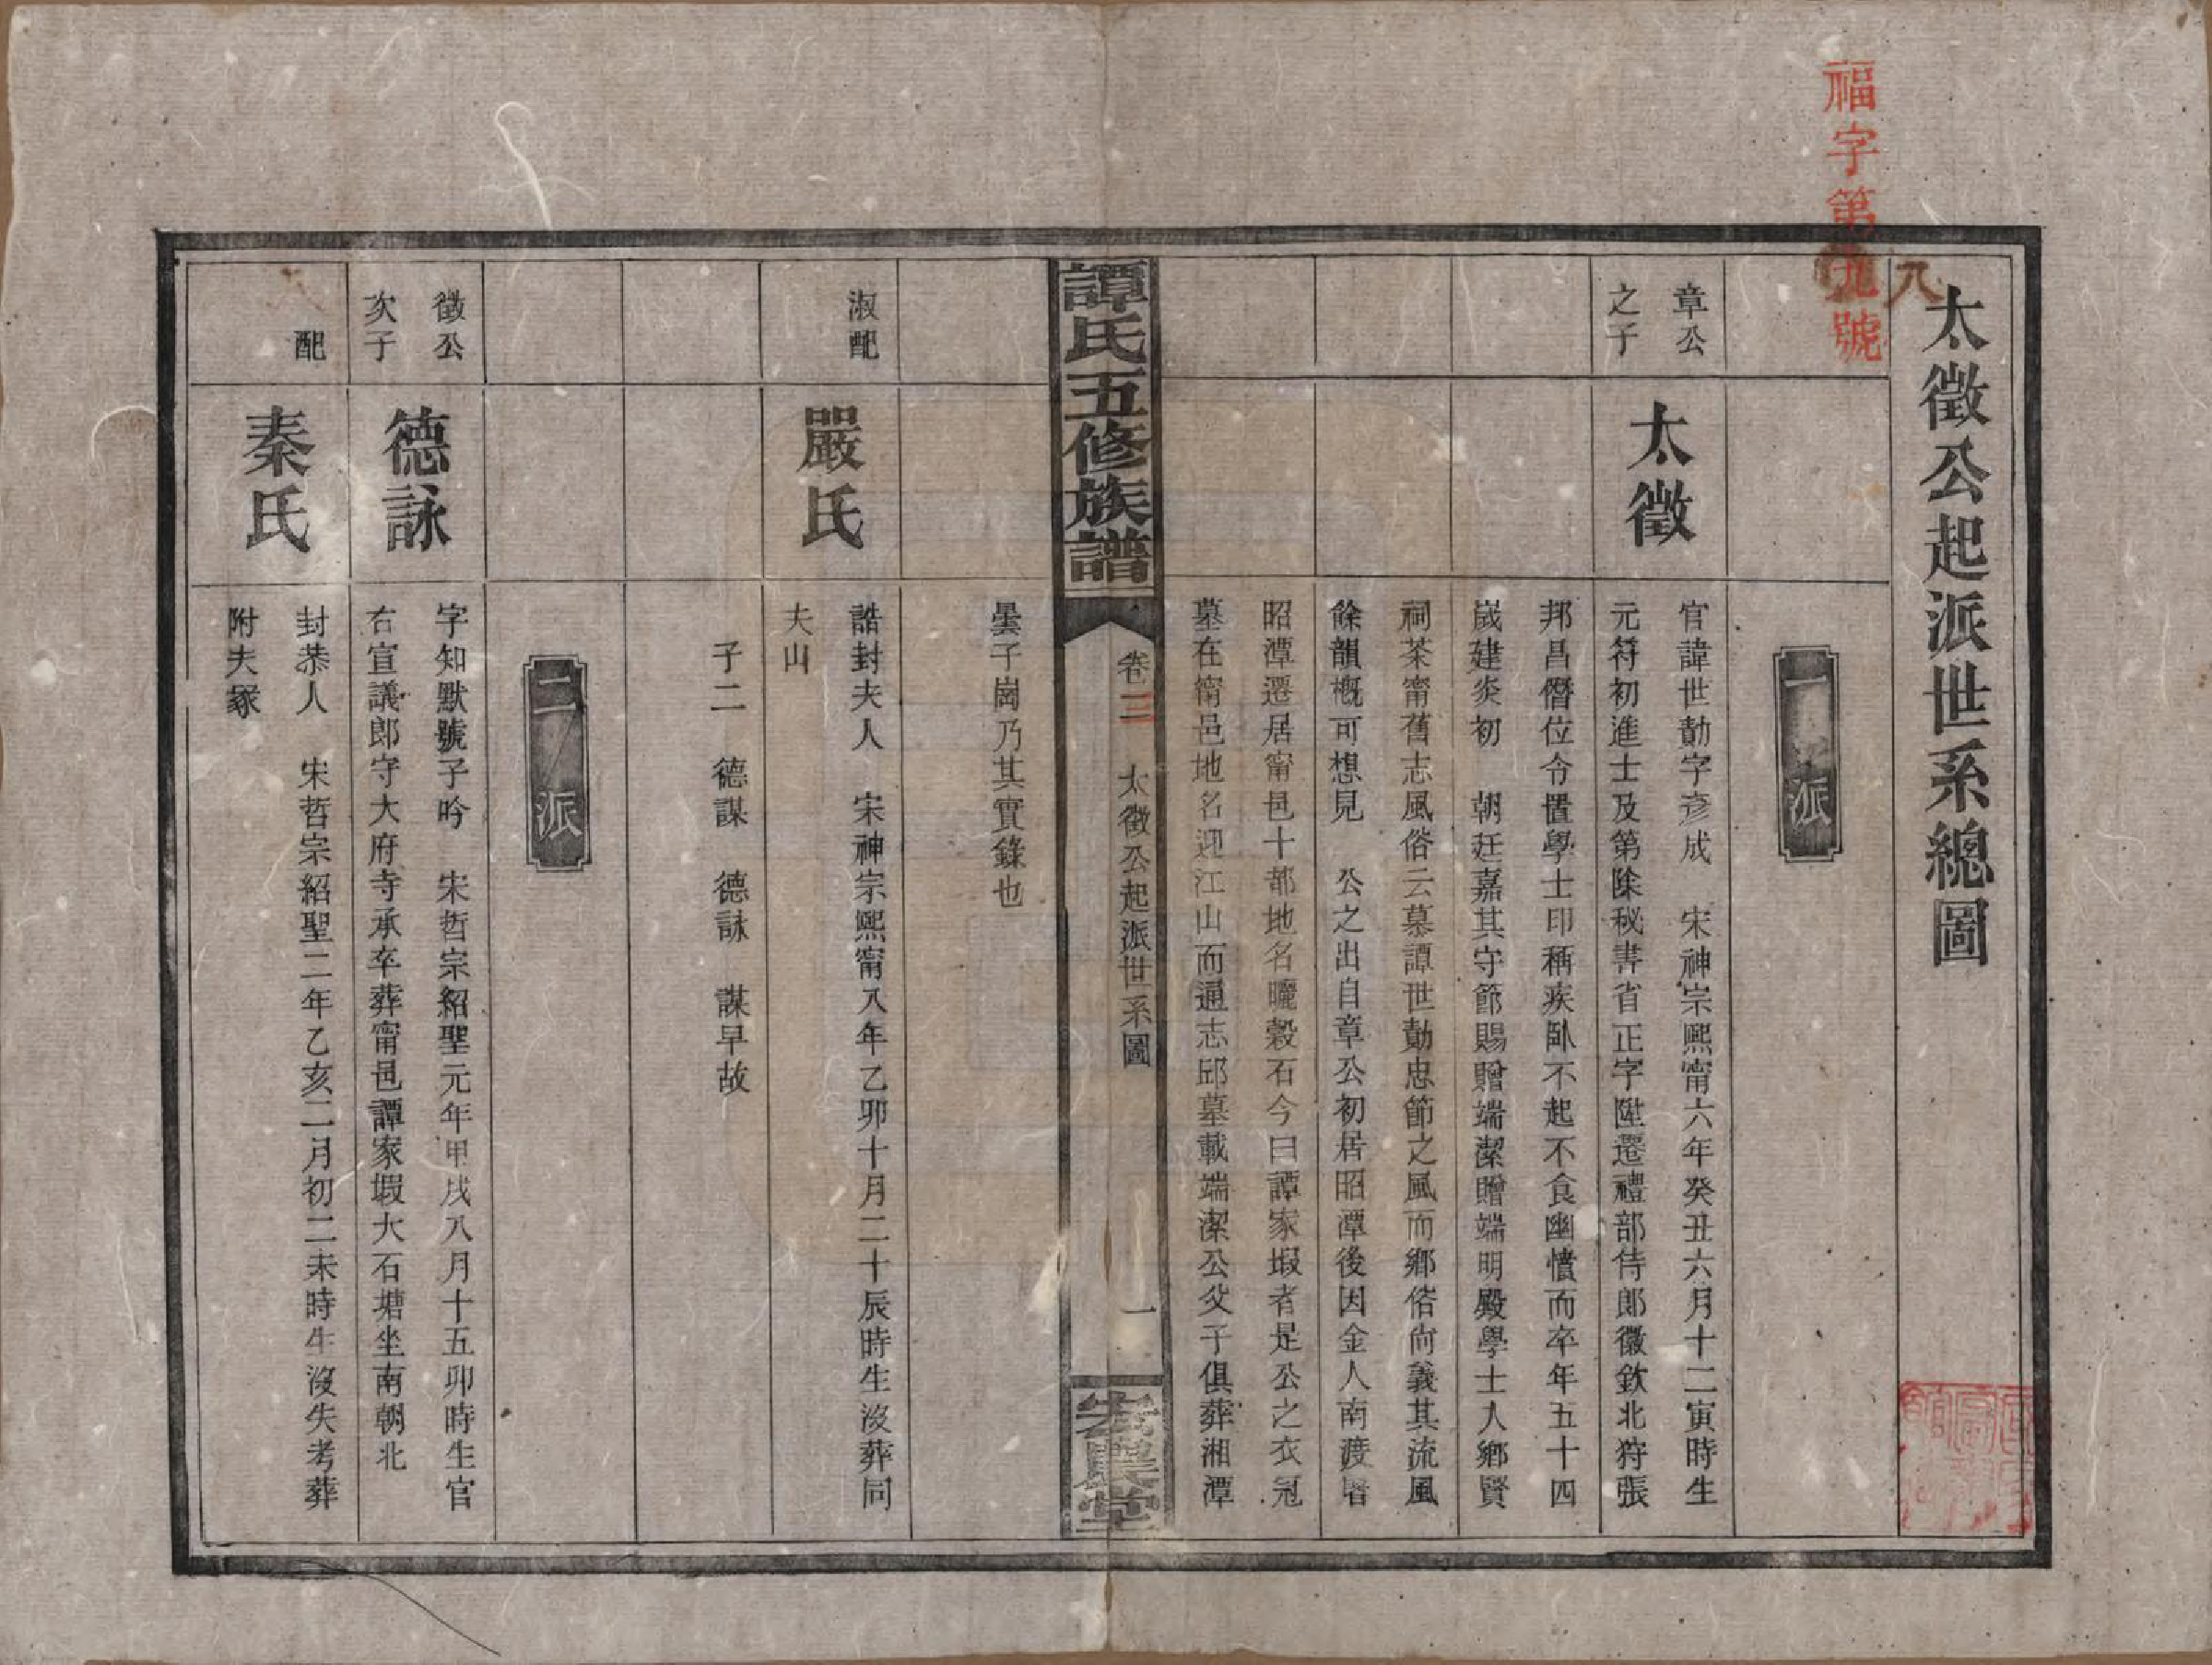 福字第九號
八
太徵公起派世系總圖
一派
章公
之子
太徵
官諱世勣字彥成　宋神宗熙甯六年癸丑六月十二寅時生
元符初進士及第除秘書省正字陞遷禮部侍郎徽欽北狩張
邦昌僭位令置學士印稱疾臥不起不食幽憤而卒年五十四
嵗建炎初　朝廷嘉其守節賜贈端潔贈端明殿學士入鄉賢
祠茶甯舊志風俗云慕譚世勣忠節之風而鄉俗尙義其流風
餘韻概可想見　公之出自章公初居昭潭後因金人南渡署
昭潭遷居甯邑十都地名曬穀石今曰譚家塅者是公之衣冠
墓在甯邑地名迎江山而通志邱墓載端潔公父子俱葬湘潭
譚氏五修族譜
卷三
太徵公起派世系圖
一
宏農堂
曇子崗乃其實錄也
淑配
嚴氏
誥封夫人　宋神宗熙甯八年乙卯十月二十辰時生沒葬同
夫山
子二　德謀　德詠　謀早故
二派
徵公
次子
德詠
字知默號子吟　宋哲宗紹聖元年甲戌八月十五卯時生官
右宣議郎守大府寺承卒葬甯邑譚家塅大石塘坐南朝北
配
秦氏
封恭人　宋哲宗紹聖二年乙亥二月初二未時生沒失考葬
附夫冢